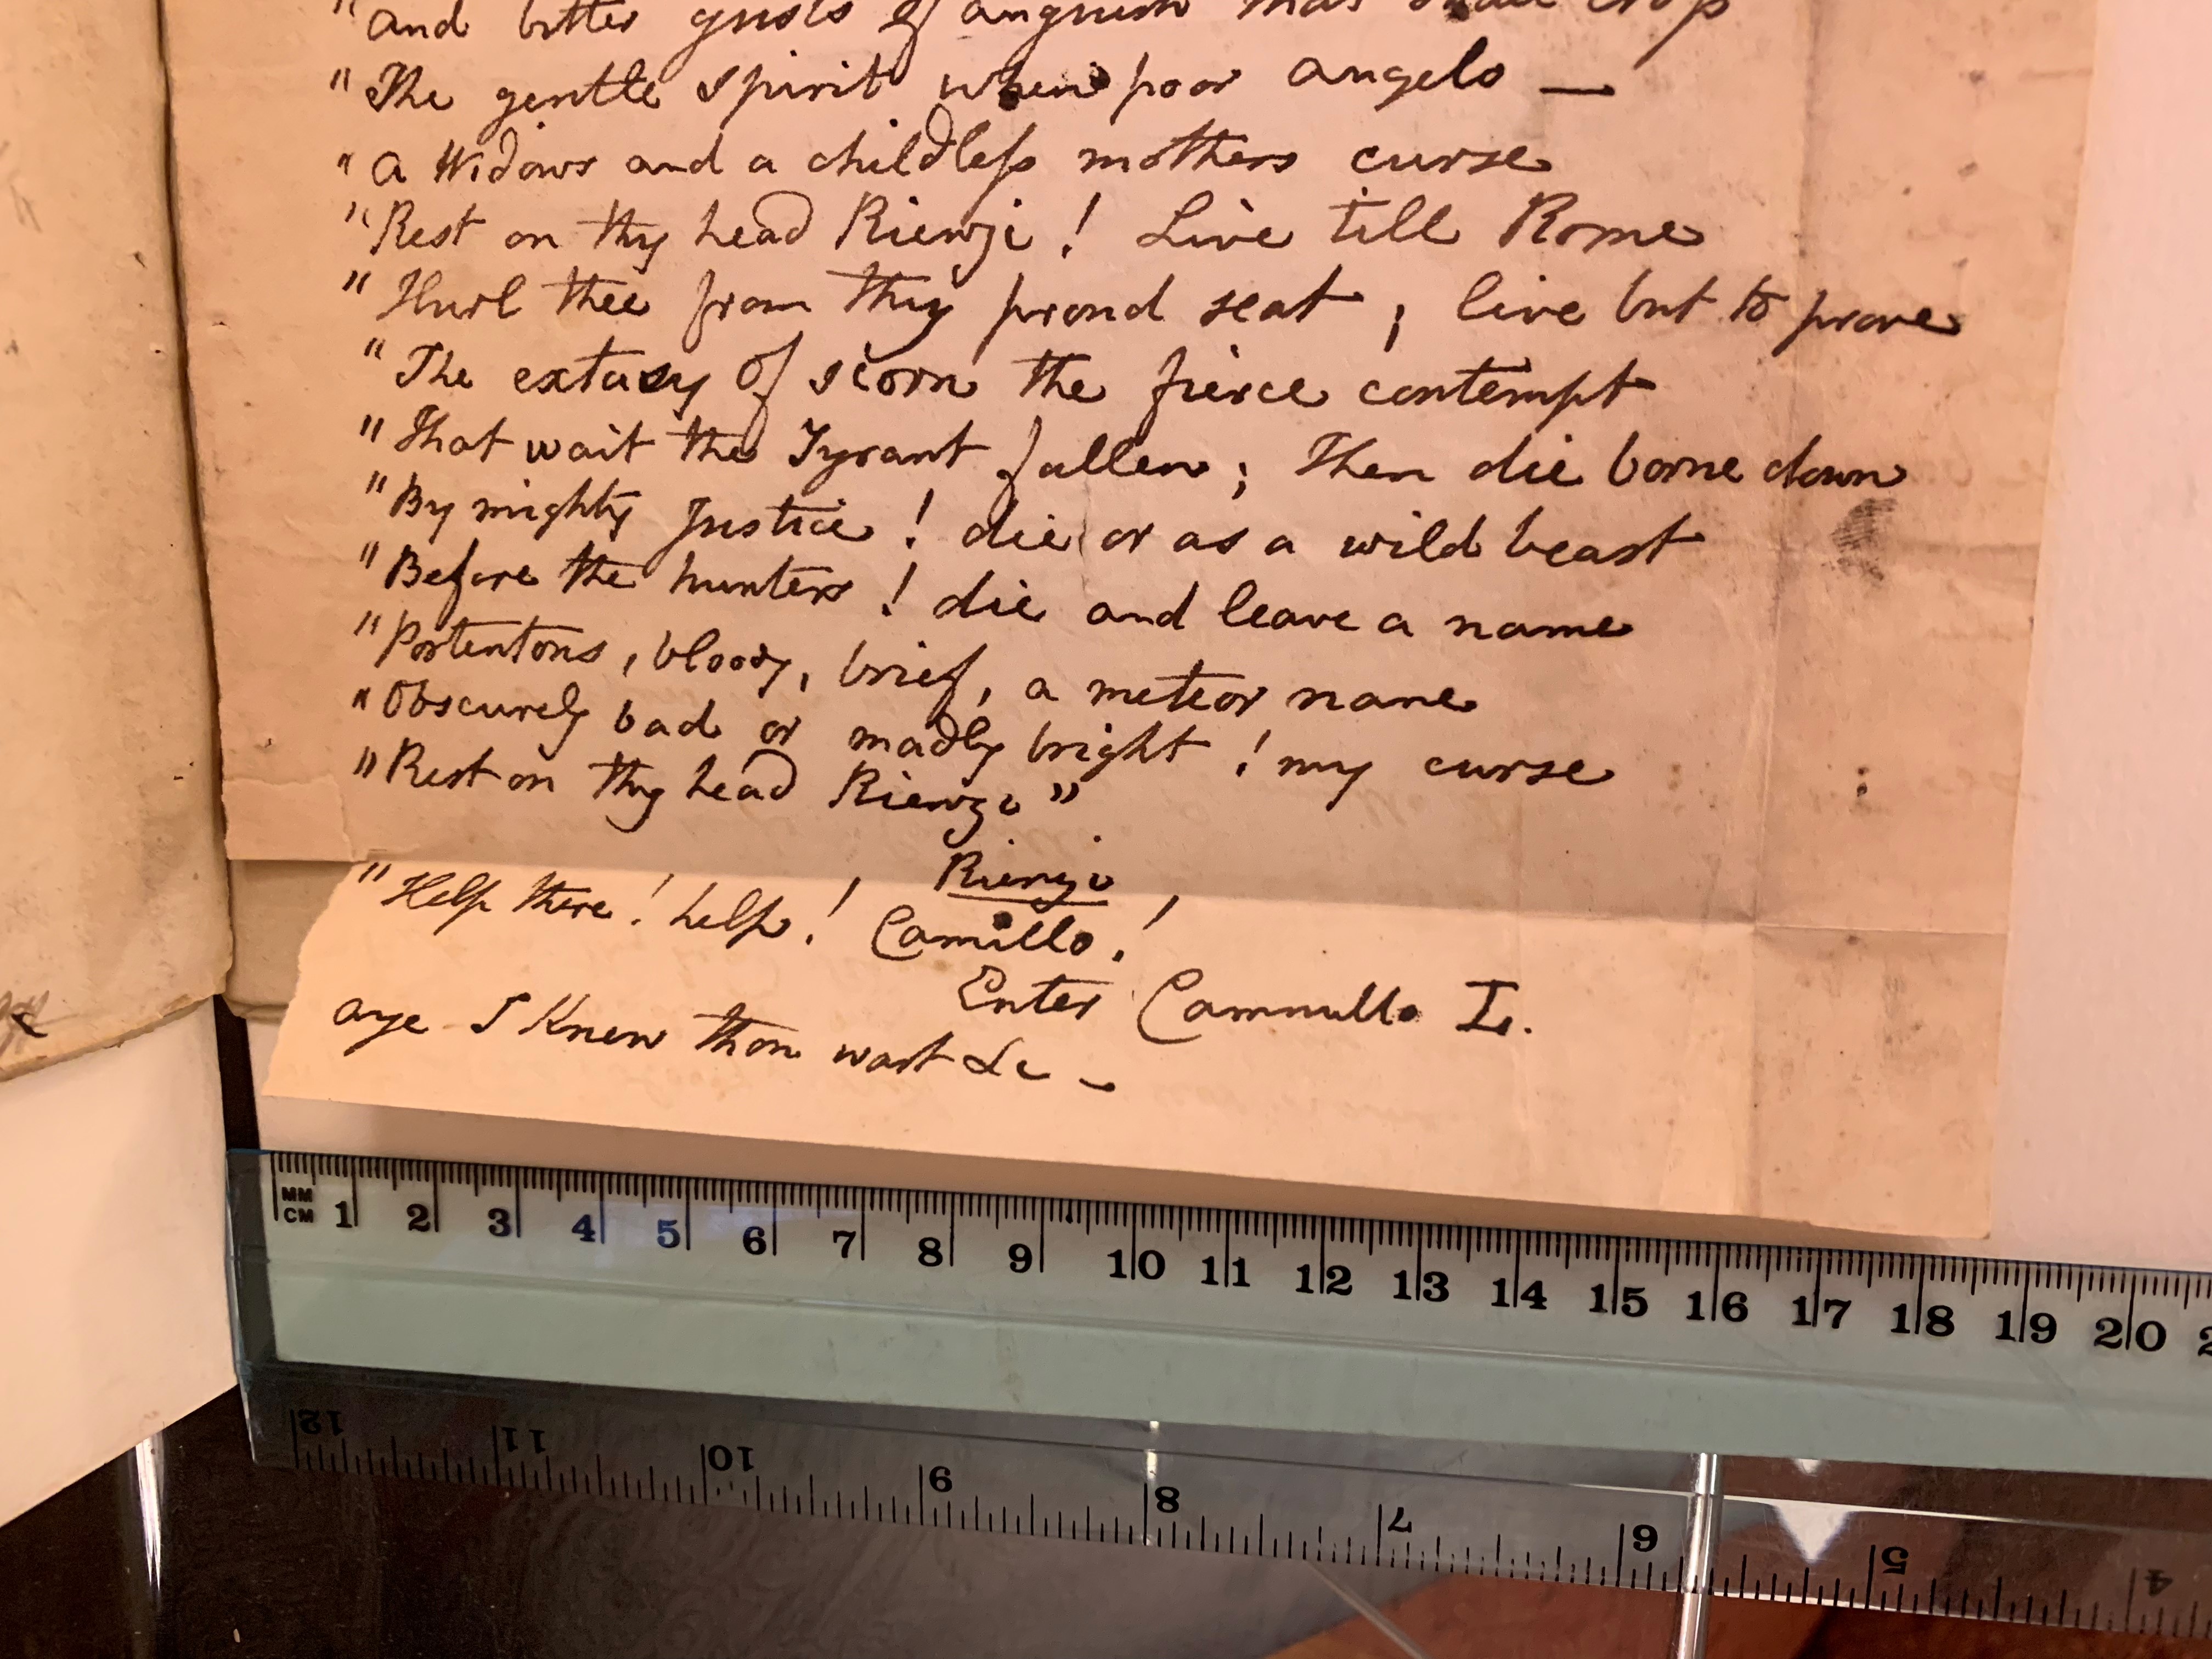 "and bitter gusts of anguish that shall crop
"The gentle spirit when poor angelo —
"a Widows and a childless mothers curse
"Rest on thy head Rienzi! Live till Rome
"Hurl thee from thy proud seat; live but to prove
"The extasy Of scorn the fierce contempt
"That wait the Tyrant fallen; Then die borne down
"By mighty Justice! die or as a wild beast
"Before the hunters! die and leave a name
"Portentous, bloody, brief, a meteor name
"Obscurely bad or madly bright! my curse
"Rest on thy head Rienzi"
Rienzi
"Help there! help! Camillo!
Enter Cammullo L.
aye I Knew thou wast &c —
MM
CM 1 2 3 4 5 6 7 8 9 10 11 12 13 14 15 16 17 18 19 20 2
12 11 10 9 8 7 6 5 4